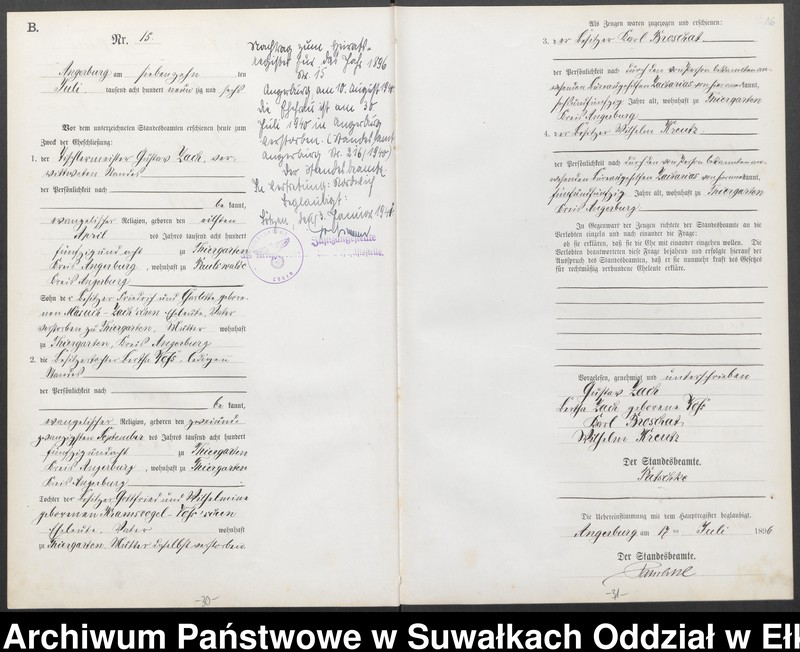 B.
Nr. 15
Angerburg am siebenzehn ten
Juli tausend acht hundert neun zig und sechs
Vor dem unterzeichneten Standesbeamten erschienen heute zum
Zweck der Eheschließung:
1. der Tischlermeister Gustav Zach, ver-
wittweten Standes
der Persönlichkeit nach
be kannt,
evangelischer Religion, geboren den elften
April des Jahres tausend acht hundert
fünfzig und acht zu Thiergarten
Kreis Angerburg, wohnhaft zu Paulswalde
Kreis Angerburg
Sohn der Besitzer Friedrich und Charlotte gebore-
nen Zach'schen Eheleute, Vater
verstorben zu Thiergarten, Mutter wohnhaft
zu Thiergarten, Kreis Angerburg
2. die Besitzertochter Bertha Voß, ledigen
Standes
der Persönlichkeit nach
be kannt,
evangelischer Religion, geboren den zweiund-
zwanzigsten September des Jahres tausend acht hundert
fünfzig und acht zu Thiergarten
Kreis Angerburg, wohnhaft zu Thiergarten
Kreis Angerburg
Tochter der Besitzer Gottfried und Wilhelmine
geborenen Voß'schen
Eheleute, Vater wohnhaft
zu Thiergarten, Mutter daselbst verstorben
-30-
Nachtrag zum Heirats-
register für das Jahr 1896
Nr. 15
Angerburg, am 10. August 1940
Die Ehefrau ist am 30
Juli 1940 in Angerburg
verstorben. (Standesamt
Angerburg Nr. 216/1940)
Der Standesbeamte
In Vertretung:
Beglaubigt:
Lötzen, den 3. Januar 194
16
Als Zeugen waren zugezogen und erschienen:
3. der Besitzer Karl Broschat
der Persönlichkeit nach durch den von Person bekannten an-
wesenden Bureaugehilfen Zacharias von hier anerkannt,
sechsundfünfzig Jahre alt, wohnhaft zu Thiergarten
Kreis Angerburg
4. der Besitzer Wilhelm Kreutz
der Persönlichkeit nach durch den von Person bekannten an-
wesenden Bureaugehilfen Zacharias von hier anerkannt,
fünfundfünfzig Jahre alt, wohnhaft zu Thiergarten
Kreis Angerburg
In Gegenwart der Zeugen richtete der Standesbeamte an die
Verlobten einzeln und nach einander die Frage:
ob sie erklären, daß sie die Ehe mit einander eingehen wollen. Die
Verlobten beantworteten diese Frage bejahend und erfolgte hierauf der
Ausspruch des Standesbeamten, daß er sie nunmehr kraft des Gesetzes
für rechtmäßig verbundene Eheleute erkläre.
Vorgelesen, genehmigt und unterschrieben
Gustav Zach
Bertha Zach geborene Voß
Karl Broschat
Wilhelm Kreutz
Der Standesbeamte.
Die Uebereinstimmung mit dem Hauptregister beglaubigt.
Angerburg am 17 ten Juli 1896
Der Standesbeamte.
-31-
Archiwum Państwowe w Suwałkach Oddział w Ełk